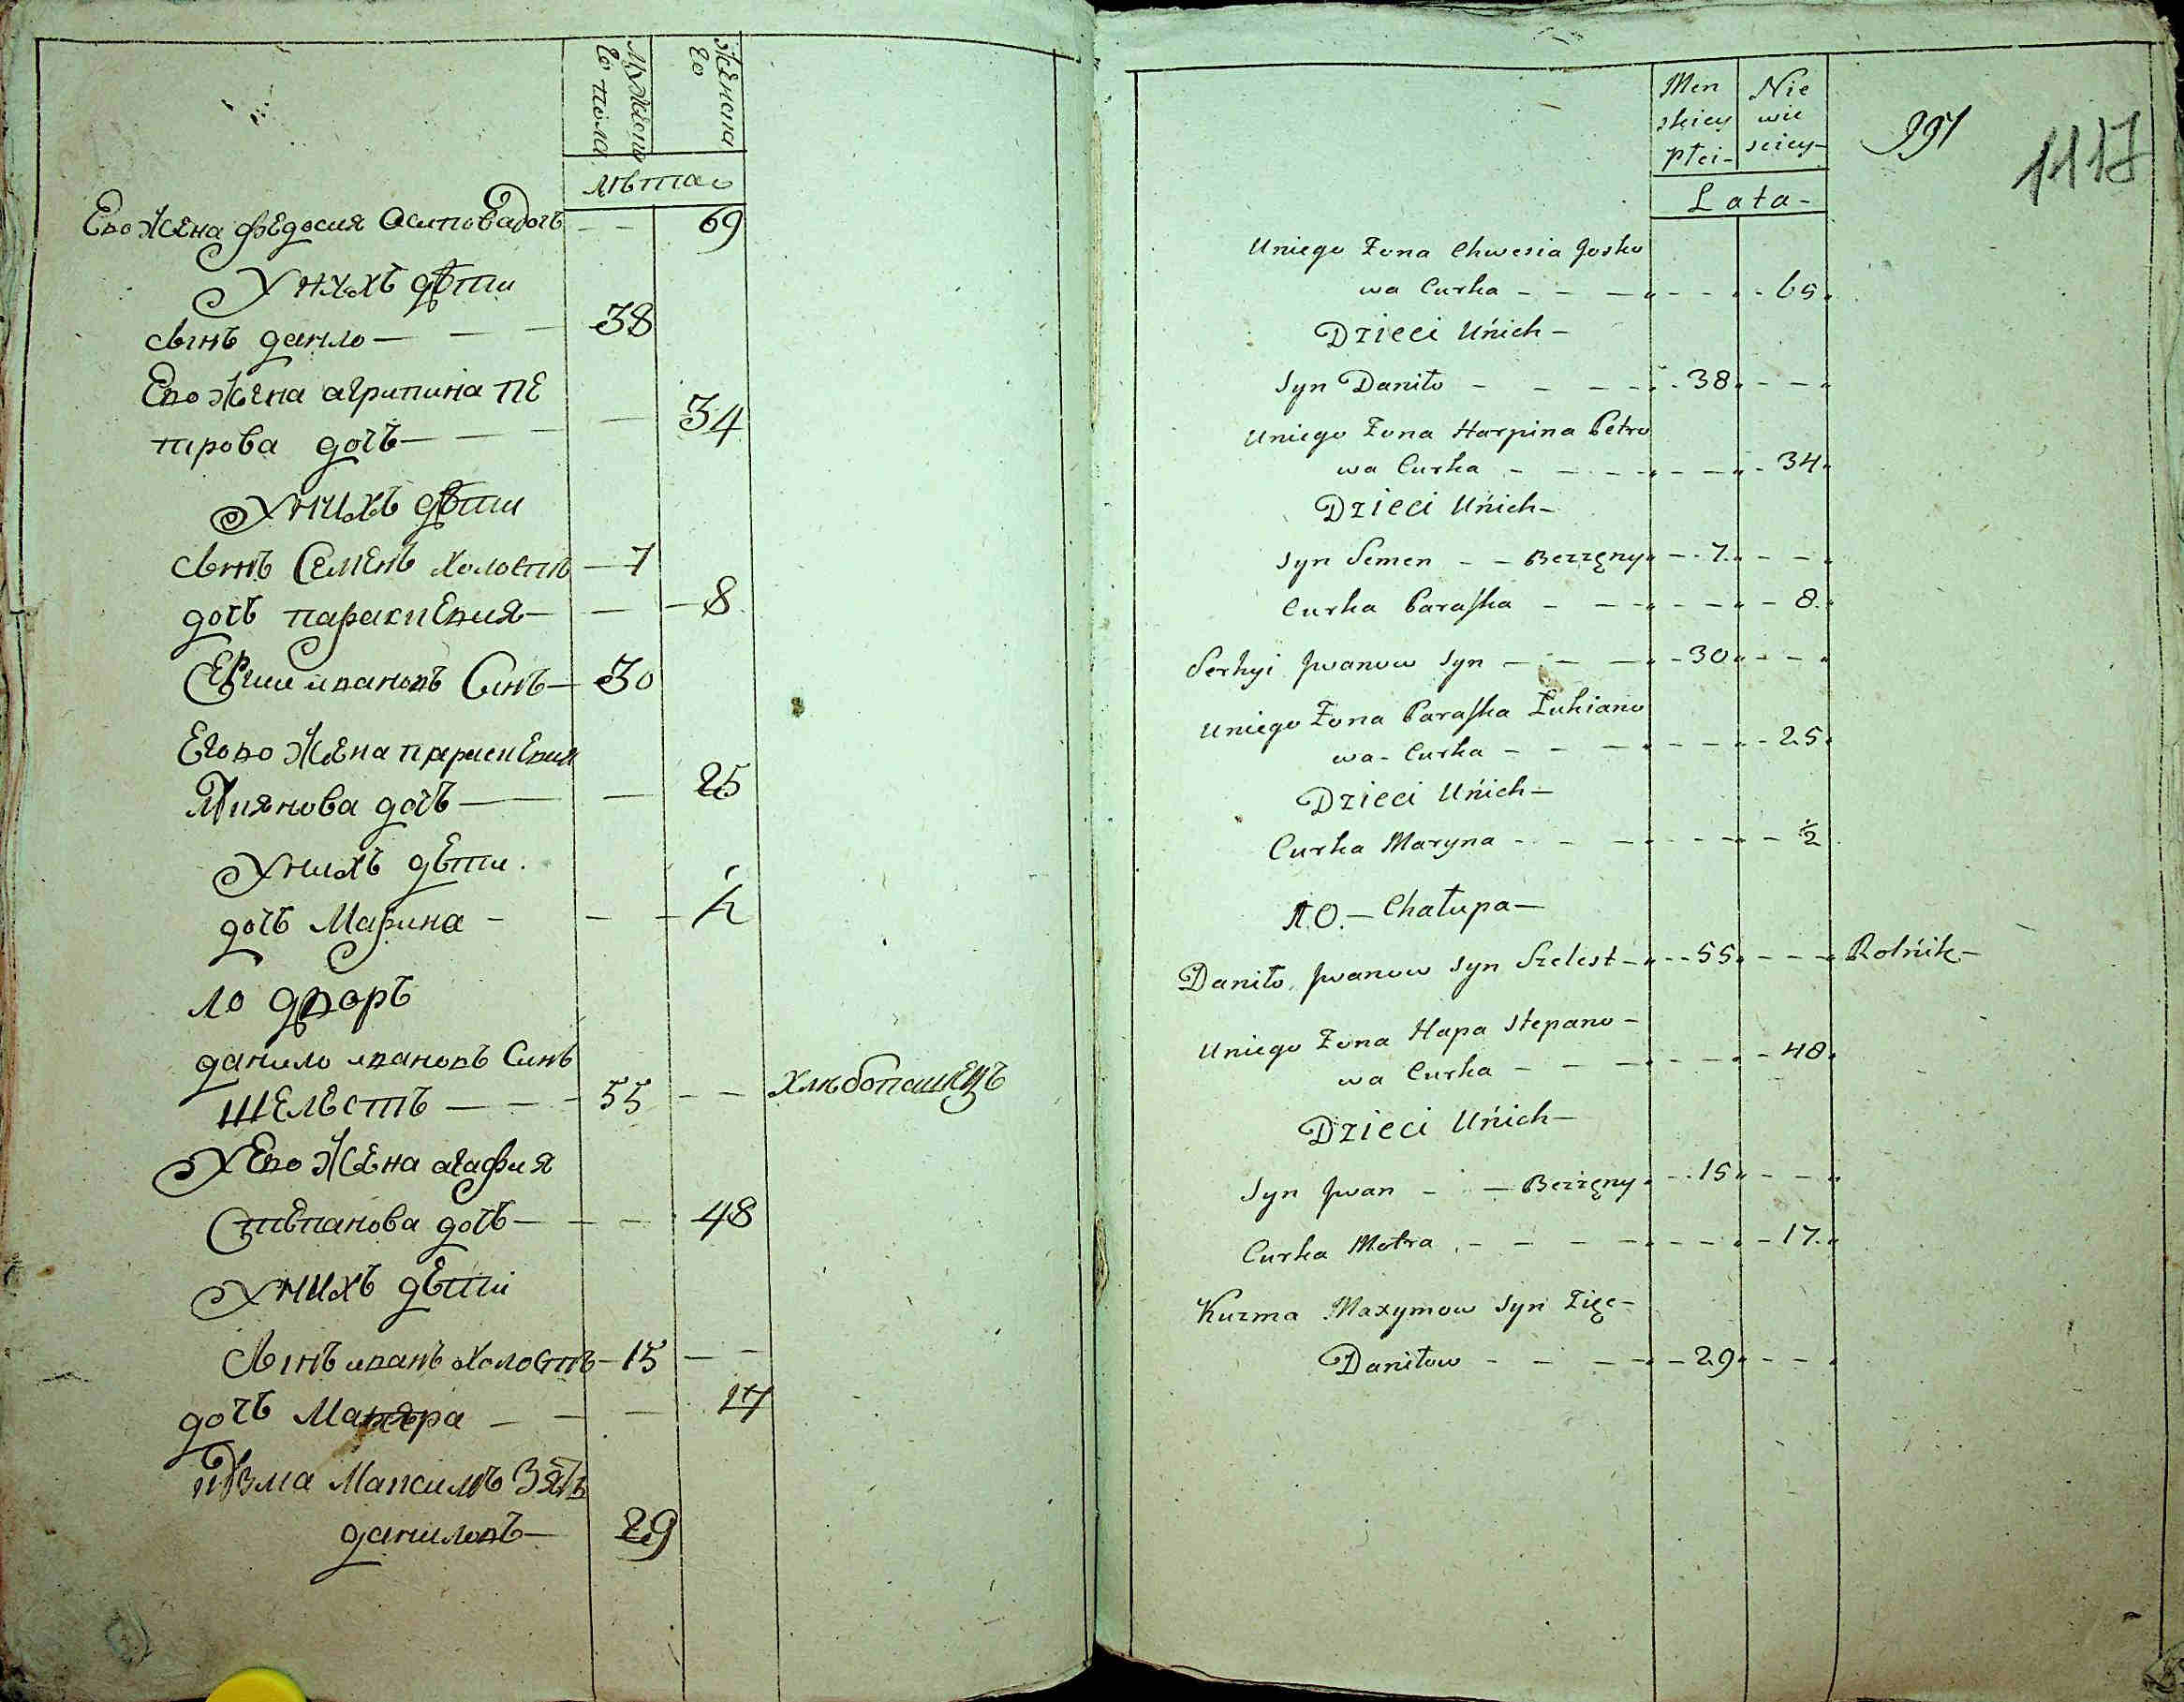 Мужеско
го пола
Женска
го
лѣта
Его жена федосия Осипова дочь – – 69
У нихъ дѣти
сынъ данло – – – 38
Его жена агрипина пе
трова дочь – – – – 34
У нихъ дѣти
сынъ Семенъ холостъ – 7
дочь параскевия – – – 8
Сергии ивановъ Синъ – 30
Егово жена параскевия
дочь – – 25
У нихъ дѣти
дочь Марина – – – ½
ло дворъ
данило ивановъ Синъ
шелестъ – – – 55 – – хлѣбопашецъ
У Его жена агафия
Стѣпанова дочь – – – 48
У нихъ дѣти
сынъ иванъ холостъ – 15 – –
дочь – – – 17
кузма Максимъ Зять
даниловъ – 29
Men
skiey
Płci –
Nie
wie
sciey –
Lata –
991
1117
Uniego Żona Chwesia Josko
wa Curka – – – – – 65
Dzieci Unich –
Syn Daniło – – – – 38 – –
Uniego Żona Harpina Petro
wa Curka – – – – – 34
Dzieci Unich –
Syn Semen – – Bezżęny – 7 – –
Curka Paraska – – – – – 8
Serhyi Jwanow Syn – – – 30 – –
Uniego Żona Paraska Łukiano
wa – Curka – – – – – 25
Dzieci Unich –
Curka Maryna – – – – – ½
Ł.O. – Chałupa –
Daniło Jwanow Syn Szelest – – 55 – – Rolnik –
Uniego Żona Hapa Stepano –
wa Curka – – – – – 48
Dzieci Unich –
Syn Jwan – – Bezżęny – 15 – –
Curka Motra – – – – – 17
Kuzma Maxymow Syn Zięc –
Daniłow – – – – 29 – –